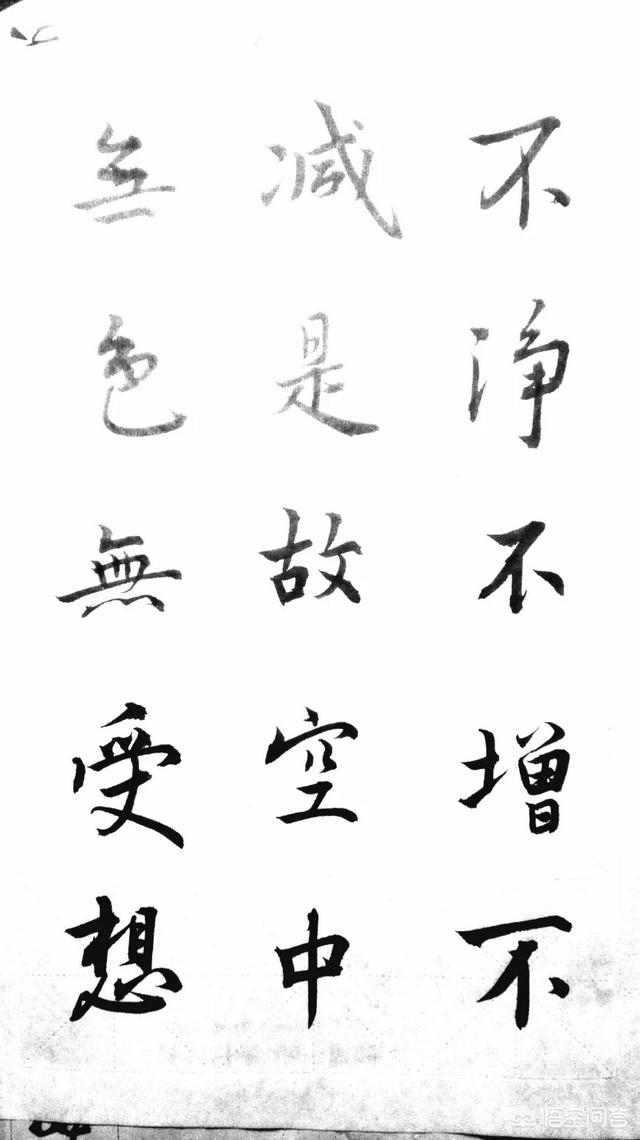 不淨不增不
减是故空中
無色無受想
悟空问答